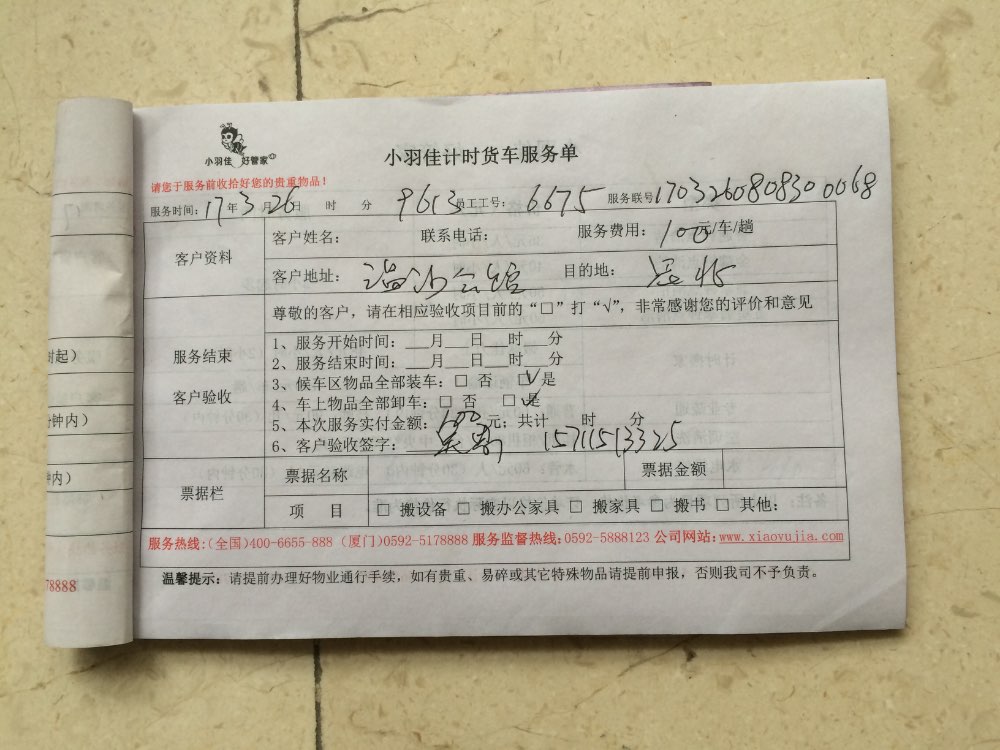 小羽佳 好管家
小羽佳计时货车服务单
请您于服务前收拾好您的贵重物品!
服务时间: 17年3月26日 时 分 9613 员工工号: 6675 服务联号 1703260808300068
客户资料
客户姓名: 联系电话: 服务费用: 100元/车/趟
客户地址: 会馆 目的地:
尊敬的客户, 请在相应验收项目前的“□”打“√”, 非常感谢您的评价和意见
服务结束
客户验收
1、服务开始时间: ___月___日___时___分
2、服务结束时间: ___月___日___时___分
3、候车区物品全部装车: □ 否 ☑ 是
4、车上物品全部卸车: □ 否 ☑ 是
5、本次服务实付金额: 100元; 共计 时 分
6、客户验收签字: 15711513325
票据栏
票据名称 票据金额
项 目 □ 搬设备 □ 搬办公家具 □ 搬家具 □ 搬书 □ 其他:
服务热线:(全国)400-6655-888 (厦门)0592-5178888 服务监督热线:0592-5888123 公司网站:www.xiaoyujia.com
温馨提示: 请提前办理好物业通行手续, 如有贵重、易碎或其它特殊物品请提前申报, 否则我司不予负责。
时起)
钟内)
钟内)
78888